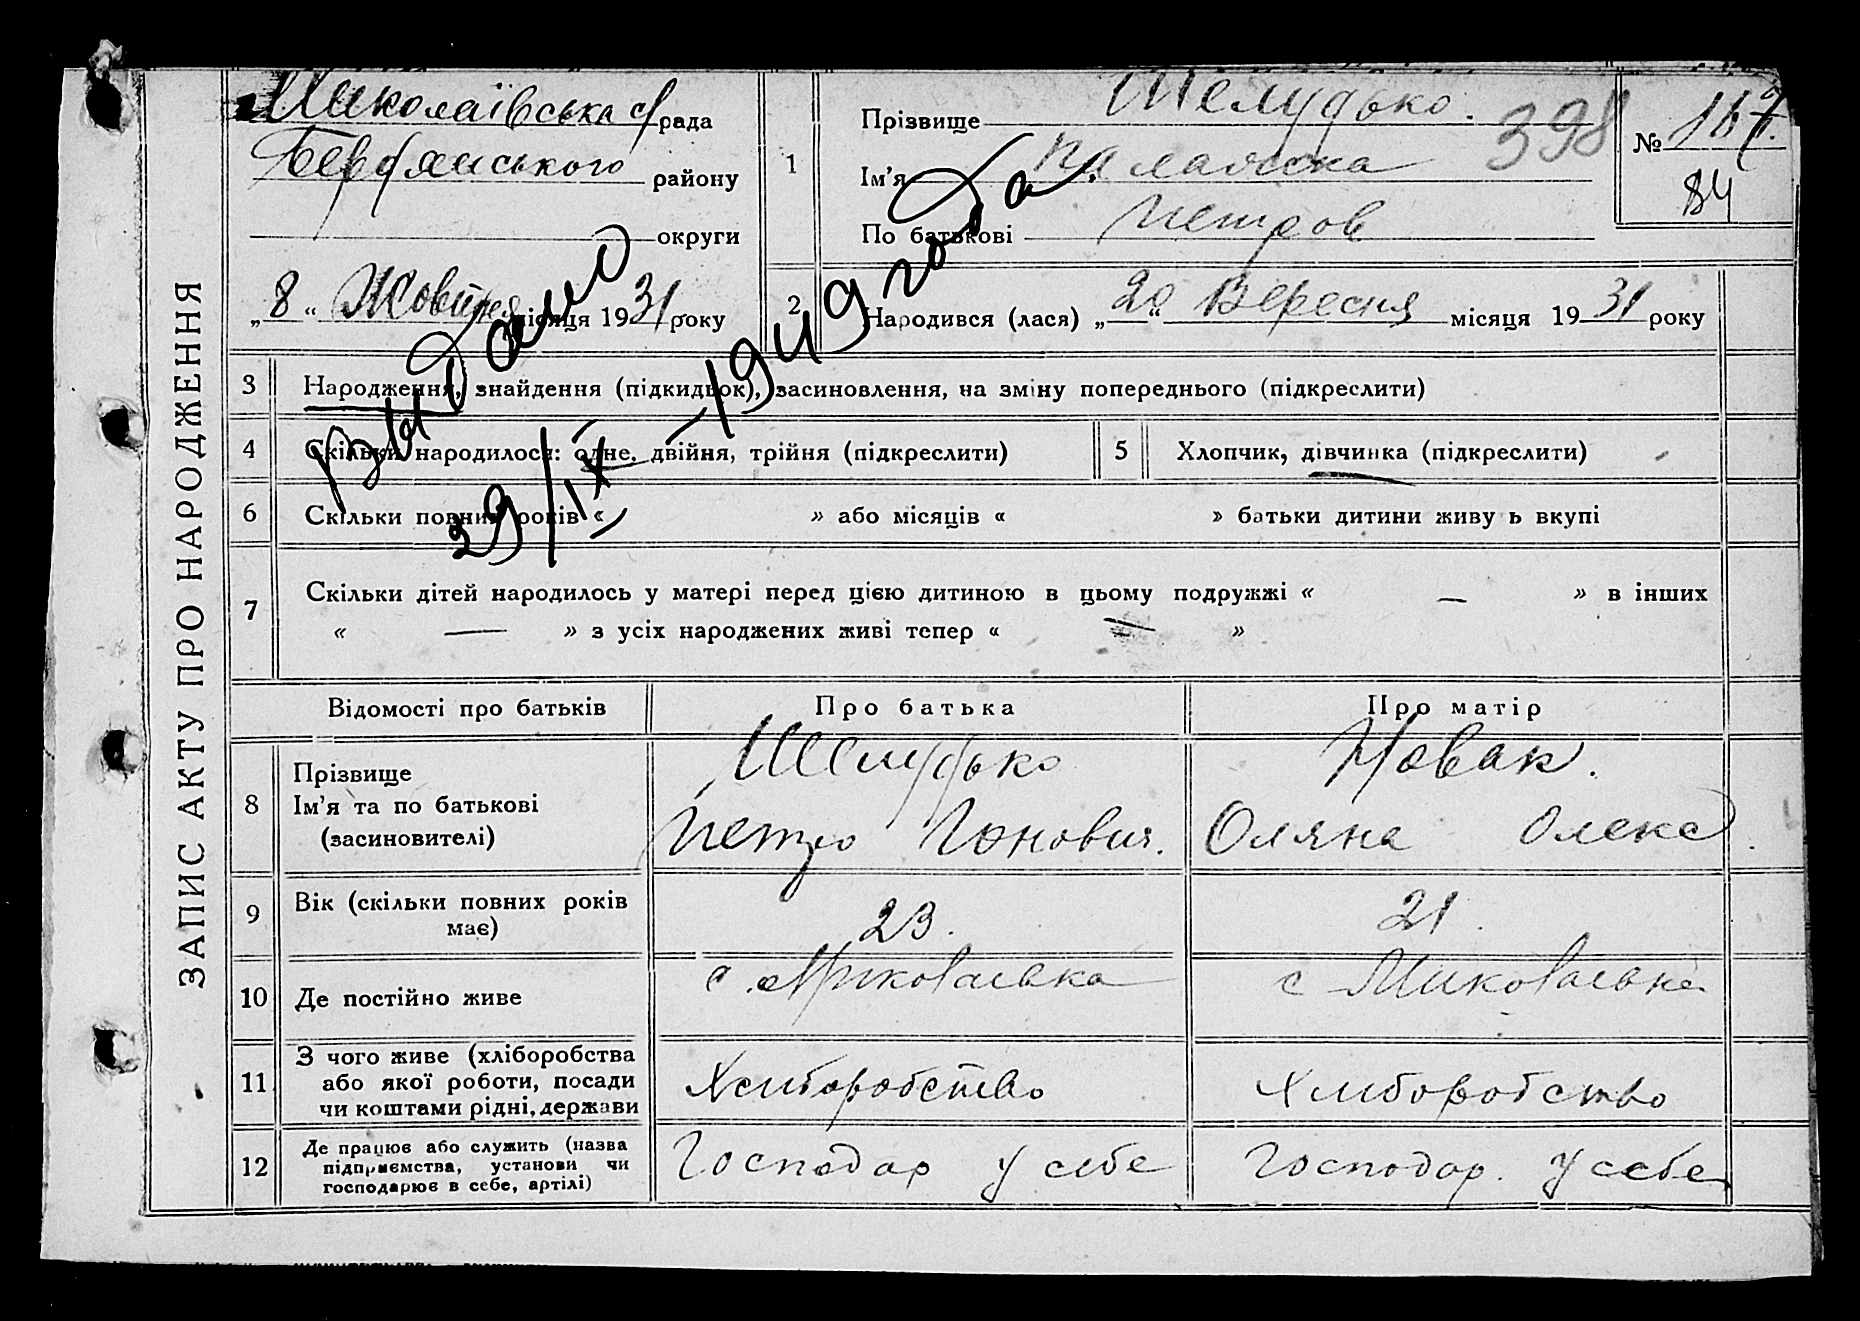 ЗАПИС АКТУ ПРО НАРОДЖЕННЯ
Миколаївська с/рада
Бердянського району
округи
„8“ Жовтня місяця 1931 року
1
Прізвище Шелудько.
Ім'я
По батькові Петров
398
№ 167.
84
2
Народився (лася) „20“ Вересня місяця 1931 року
Выдано
29/IX – 1949 года.
3 Народження, знайдення (підкидьок), засиновлення, на зміну попереднього (підкреслити)
4 Скільки народилося: одне, двійня, трійня (підкреслити)
5 Хлопчик, дівчинка (підкреслити)
6 Скільки повних років « » або місяців « » батьки дитини живу ь вкупі
7 Скільки дітей народилось у матері перед цією дитиною в цьому подружжі « — » в інших
« — » з усіх народжених живі тепер « — »
Відомості про батьків
Про батька
Про матір
8
Прізвище
Ім'я та по батькові
(засиновителі)
Шелудько
Петро Іонович.
Новак.
Оляна Олекс
9
Вік (скільки повних років
має)
23.
21.
10 Де постійно живе
с. Миколаївка
с Миколаївка
11
З чого живе (хліборобства
або якої роботи, посади
чи коштами рідні, держави
Хлиборобство
Хлиборобство
12
Де працює або служить (назва
підприємства, установи чи
господарює в себе, артілі)
Господар у себе
Господар. у себе